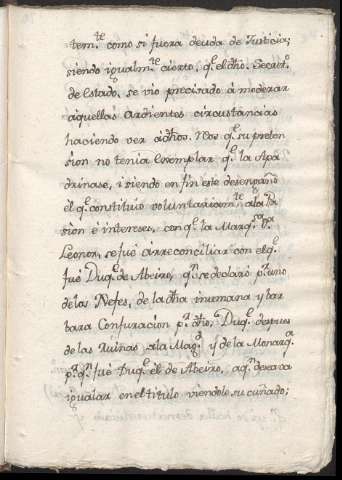 tem.te como si fuera deuda de Justicia;
siendo igualm.te cierto, q.e el dho. Secret.o
de Estado, se vio precisado à moderar
aquellas ardientes circustancias
haciendo ver à dhos. Nos q.e su preten
sion no tenia exemplar q.e la Apa
drinase, i siendo en fin este desengaño
el q.e constituiò voluntariam.te a la Pa
sion è intereses, con q.e la Marq.sa D.a
Leonor, se fuè à rreconciliar con el q.e
fuè Duq.e de Abeiro, q.n se declarò p.r uno
de los Xefes, de la dha inumana y bar
bara Conjuracion p.r dho, Duq.e despues
de las Ruinas a la Mag.d y de la Monarq.a
p.r q.n fuè Duq.e el de Abeiro, a q.n deseava
igualar en el titulo viendole su cuñado;